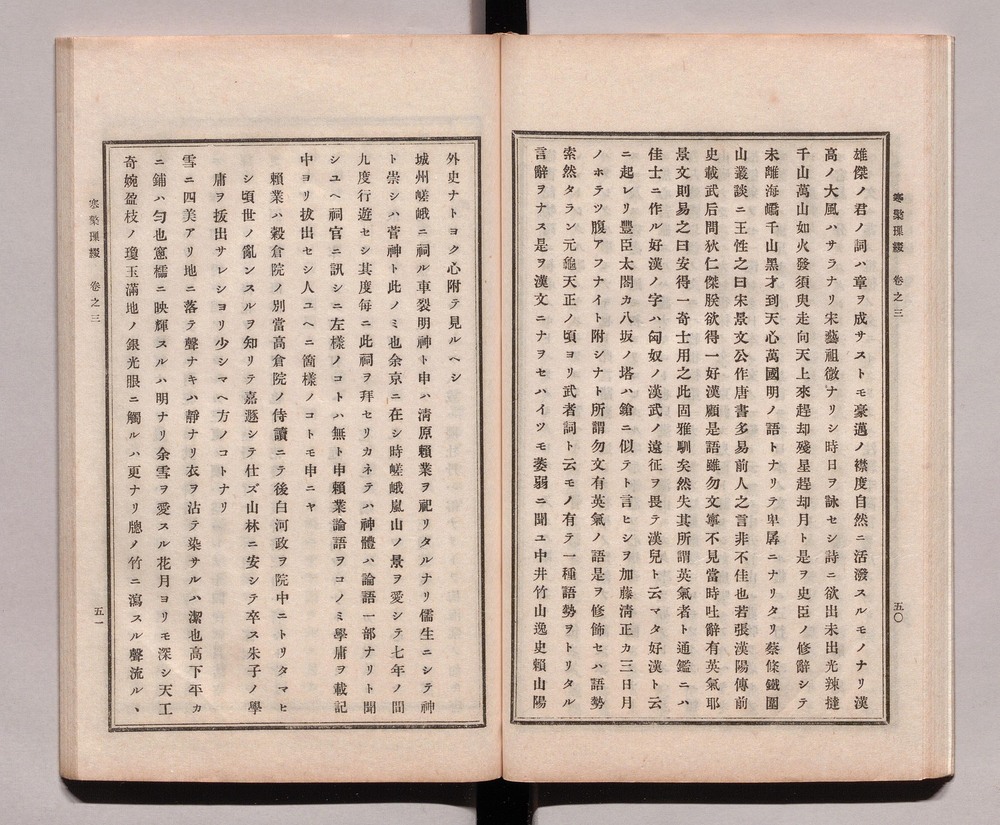 寒檠璅綴 卷之三 五〇
雄傑ノ君ノ詞ハ章ヲ成サストモ豪邁ノ襟度自然ニ活潑スルモノナリ漢
高ノ大風ハサラナリ宋藝祖微ナリシ時日ヲ詠セシ詩ニ欲出未出光辣撻
千山萬山如火發須臾走向天上來趕却殘星趕却月ト是ヲ史臣ノ修辭シテ
未離海嶠千山黑才到天心萬國明ノ語トナリテ卑孱ニナリタリ蔡絛鐵圍
山叢談ニ王性之曰宋景文公作唐書多易前人之言非不佳也若張漢陽傳前
史載武后問狄仁傑朕欲得一好漢顧是語雖勿文寧不見當時吐辭有英氣耶
景文則易之曰安得一奇士用之此固雅馴矣然失其所謂英氣者ト通鑑ニハ
佳士ニ作ル好漢ノ字ハ匈奴ノ漢武ノ遠征ヲ畏テ漢兒ト云マタ好漢ト云
ニ起レリ豐臣太閤カ八坂ノ塔ハ鎗ニ似テト言ヒシヲ加藤淸正カ三日月
ノホテツ腹アフナイト附シナト所謂勿文有英氣ノ語是ヲ修飾セハ語勢
索然タラン元龜天正ノ頃ヨリ武者詞ト云モノ有テ一種語勢ヲトリタル
言辭ヲナス是ヲ漢文ニナヲセハイツモ萎弱ニ聞ユ中井竹山逸史賴山陽
外史ナトヨク心附テ見ルヘシ
城州嵯峨ニ祠ル車裂明神ト申ハ淸原賴業ヲ祀リタルナリ儒生ニシテ神
ト崇シハ菅神ト此ノミ也余京ニ在シ時嵯峨嵐山ノ景ヲ愛シテ七年ノ間
九度行遊セシ其度每ニ此祠ヲ拜セリカネテハ神體ハ論語一部ナリト聞
シユヘ祠官ニ訊シニ左樣ノコトハ無ト申賴業論語ヲコノミ學庸ヲ載記
中ヨリ拔出セシ人ユヘニ箇樣ノコトモ申ニヤ
賴業ハ穀倉院ノ別當高倉院ノ侍讀ニテ後白河政ヲ院中ニトリタマヒ
シ頃世ノ亂ンスルヲ知リテ嘉遯シテ仕ズ山林ニ安シテ卒ス朱子ノ學
庸ヲ拔出サレシヨリ少シマヘ方ノコトナリ
雪ニ四美アリ地ニ落テ聲ナキハ靜ナリ衣ヲ沾テ染サルハ潔也高下平カ
ニ鋪ハ勻也窻櫺ニ映輝スルハ明ナリ余雪ヲ愛スル花月ヨリモ深シ天工
奇婉盈枝ノ瓊玉滿地ノ銀光眼ニ觸ルハ更ナリ牕ノ竹ニ瀉スル聲流ル丶
寒檠璅綴 卷之三 五一